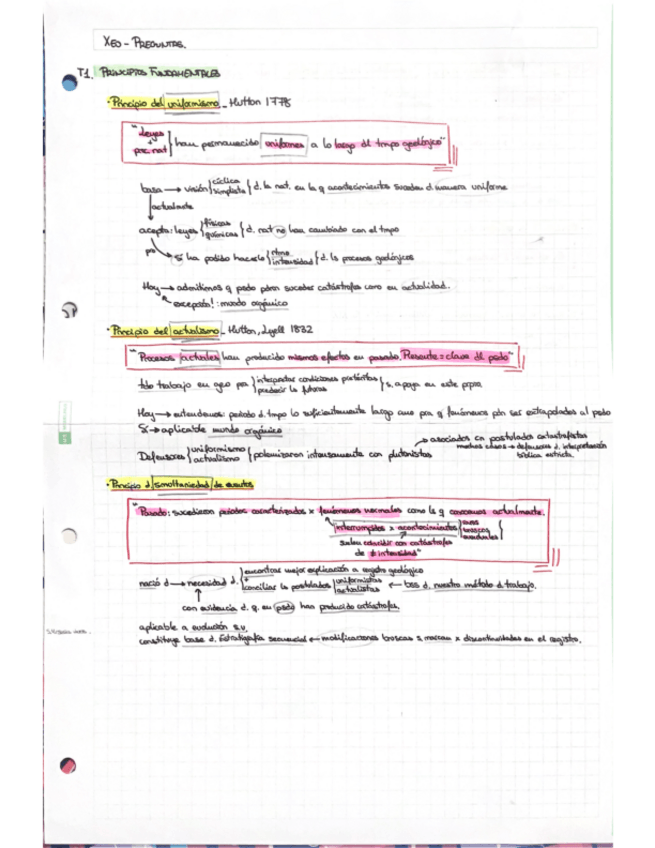 XEO - PREGUNTAS.
T1. PRINCIPIOS FUNDAMENTALES
· Principio del uniformismo - Hutton 1778
"Leyes + proc. nat } han permanecido uniformes a lo largo dl tmpo geológico"
basa → visión { cíclica simplista } d. la nat. en la q acontecimientos suceden d manera uniforme
actualmente
acepta: leyes { físicas químicas } d. nat no han cambiado con el tmpo
Sí ha podido hacerlo { ritmo intensidad } d. ls procesos geológicos
Hoy → admitimos q psdo pdron suceder catástrofes como en actualidad.
excepción!: mundo orgánico
· Principio del actualismo - Hutton, Lyell 1832
"Procesos actuales han producido mismos efectos en pasado. Presente = clave dl psdo"
tdo trabajo en geo por { interpretar condiciones pretéritas predecir ls futuras } s. apoya en este ppio
Hoy → entendemos: periodo d. tmpo lo suficientemente largo cmo pra q fenómenos pdn ser extrapolados al psdo
Sí → aplicable mundo orgánico
Defensores { uniformismo actualismo } polemizaron intensamente con plutonistas → asociados cn postulados catastrofistas
muchos casos → defensores d. interpretación bíblica estricta.
· Principio d simultaniedad de eventos
"Pasado: sucedieron periodos caracterizados x fenómenos normales como ls q conocemos actualmente.
interrumpidos x acontecimientos { raros bruscos eventuales }
suelen coincidir con catástrofes
de ≠ intensidad"
nació d → necesidad d. { encontrar mejor explicación a registro geológico + conciliar ls postulados { uniformistas actualistas ← bss d. nuestro método d trabajo.
con evidencia d. q. en psdo han producido catástrofes.
aplicable a evolución s.v.
constituye base d. Estratigrafía secuencial ← modificaciones bruscas s. marcan x discontinuidades en el registro.